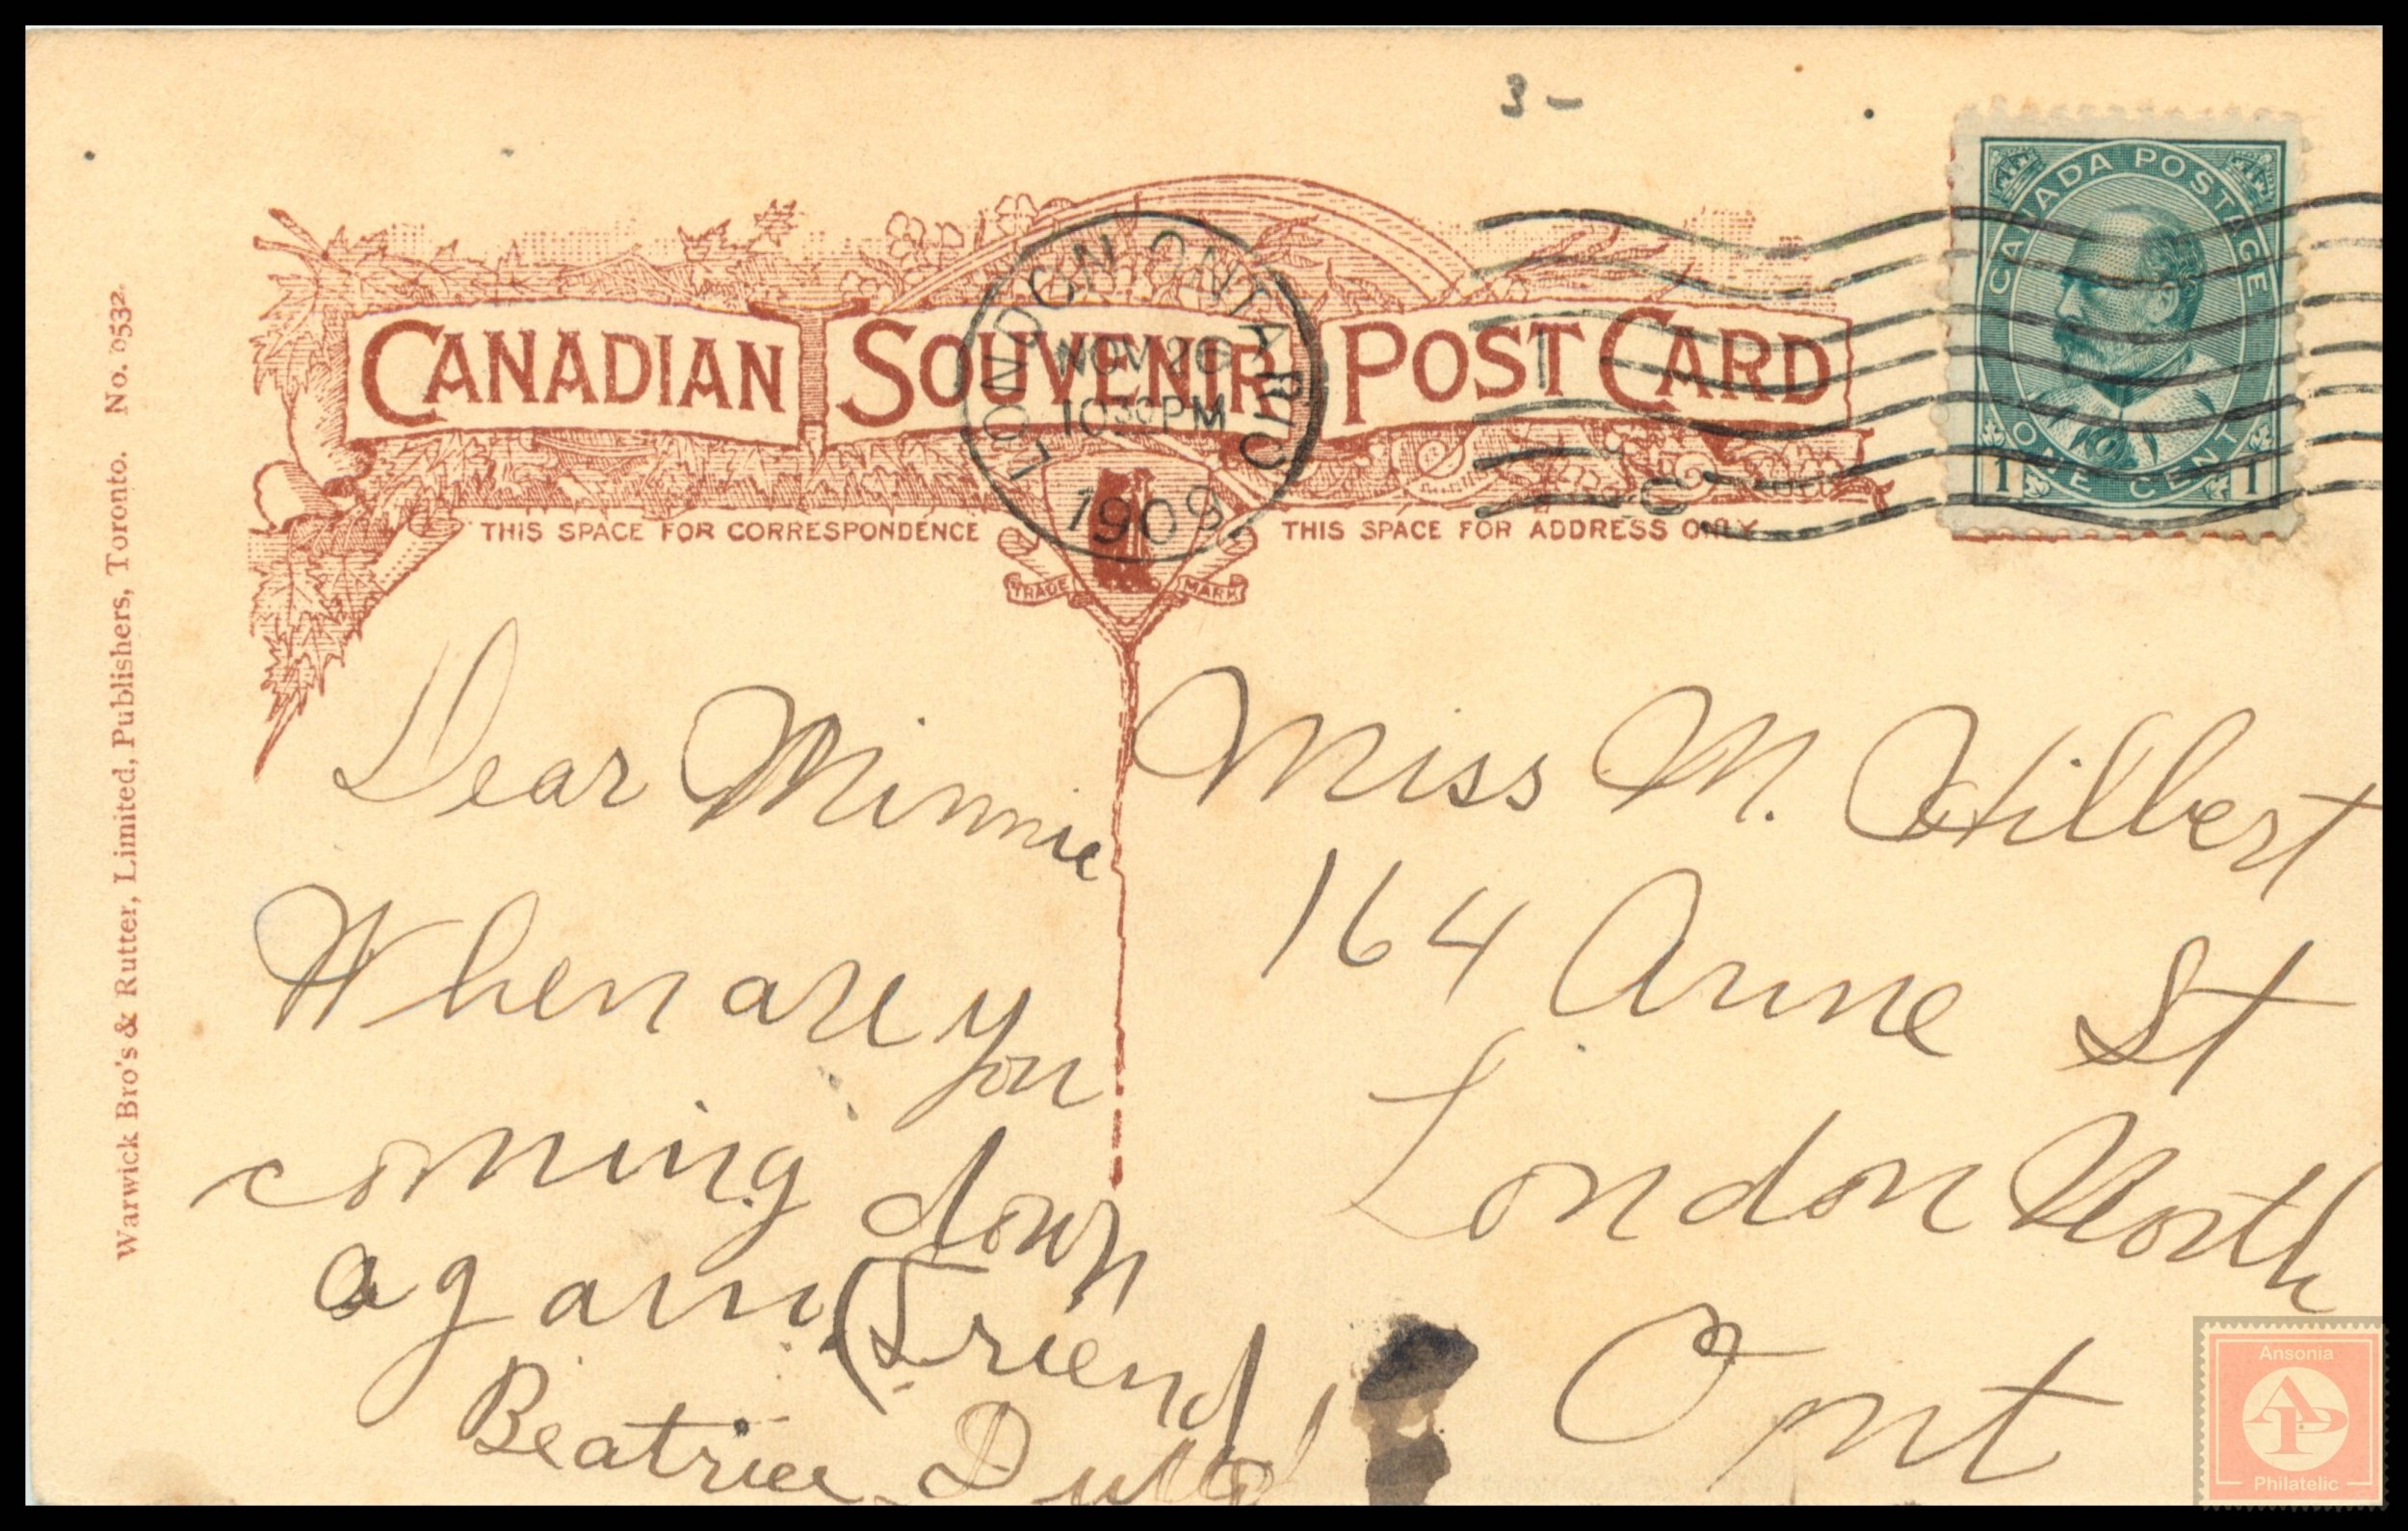 3 –
CANADA POSTAGE
ONE CENT
1 1
LONDON ONTARIO
NOV 26
1030PM
1909
C
CANADIAN SOUVENIR POST CARD
THIS SPACE FOR CORRESPONDENCE
THIS SPACE FOR ADDRESS ONLY
TRADE MARK
Warwick Bro's & Rutter, Limited, Publishers, Toronto. No. 0532.
Dear Minnie
When are you
coming down
again (Friend
Beatrice
Miss M. Hilbert
164 Anne St
London North
Ont
Ansonia
AP
Philatelic